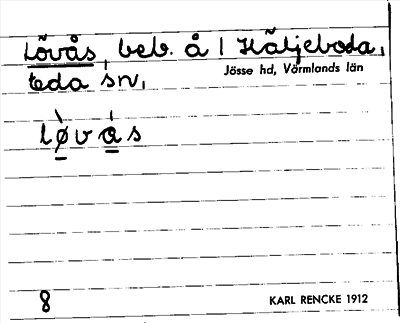 Lövås, beb. å | Häljeboda,
Eda sn,
Jösse hd, Värmlands län
løvas
8
KARL RENCKE 1912